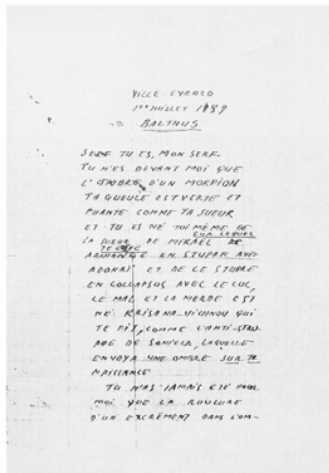 VILLE EVRARD
1er JUILLET 1939
BALTHUS
SERF TU ES, MON SERF.
TU N'ES DEVANT MOI QUE
L'OMBRE D'UN MORPION
TA GUEULE EST VERTE ET
PUANTE COMME TA SUEUR
ET TU ES NÉ TOI MÊME DE
LA SUEUR DE DE
EN STUPRE AVEC
ADONAÏ ET DE CE STUPRE
EN AVEC LE CUL,
LE MAL ET LA MERDE EST
NÉ KRISHNA-VICHNOU QUI
TE FIT, COMME L'ANTI
DE LAQUELLE
ENVOYA UNE OMBRE SUR TA
NAISSANCE
TU N'AS JAMAIS ÉTÉ POUR
MOI QUE LA ROULURE
D'UN EXCRÉMENT DANS L'OM-